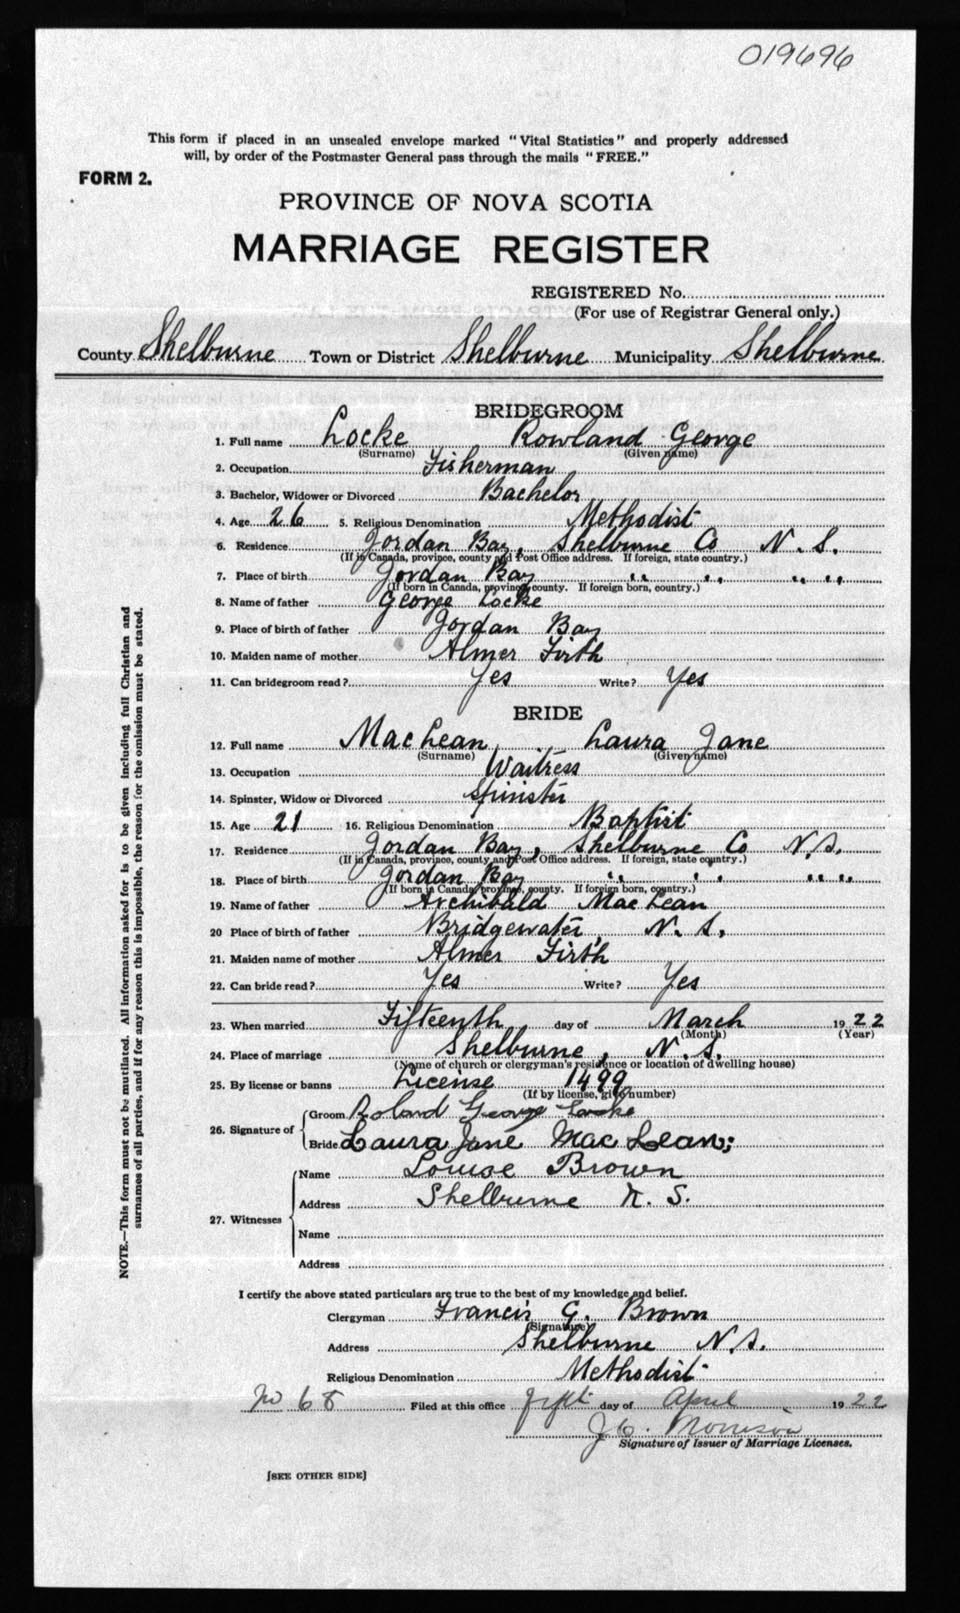 019696
This form if placed in an unsealed envelope marked "Vital Statistics" and properly addressed
will, by order of the Postmaster General pass through the mails "FREE."
FORM 2.
PROVINCE OF NOVA SCOTIA
MARRIAGE REGISTER
REGISTERED No.
(For use of Registrar General only.)
County Shelburne Town or District Shelburne Municipality Shelburne
BRIDEGROOM
1. Full name Locke Rowland George
(Surname) (Given name)
2. Occupation Fisherman
3. Bachelor, Widower or Divorced Bachelor
4. Age 26 5. Religious Denomination Methodist
6. Residence Jordan Bay, Shelburne Co N.S.
(If in Canada, province, county and Post Office address. If foreign, state country.)
7. Place of birth Jordan Bay " " " "
(If born in Canada, province, county. If foreign born, country.)
8. Name of father George Locke
9. Place of birth of father Jordan Bay
10. Maiden name of mother Almer Firth
11. Can bridegroom read? Yes Write? Yes
BRIDE
12. Full name MacLean Laura Jane
(Surname) (Given name)
13. Occupation Waitress
14. Spinster, Widow or Divorced Spinster
15. Age 21 16. Religious Denomination Baptist
17. Residence Jordan Bay, Shelburne Co N.S.
(If in Canada, province, county and Post Office address. If foreign, state country.)
18. Place of birth Jordan Bay " " " "
(If born in Canada, province, county. If foreign born, country.)
19. Name of father Archibald MacLean
20 Place of birth of father Bridgewater, N.S.
21. Maiden name of mother Almer Firth
22. Can bride read? Yes Write? Yes
23. When married Fifteenth day of March 1922
(Month) (Year)
24. Place of marriage Shelburne, N.S.
(Name of church or clergyman's residence or location of dwelling house)
25. By license or banns License 1499
(If by license, give number)
26. Signature of Groom Roland George Locke
Bride Laura Jane MacLean;
27. Witnesses
Name Louise Brown
Address Shelburne N.S.
Name
Address
I certify the above stated particulars are true to the best of my knowledge and belief.
Clergyman Francis G. Brown
(Signature)
Address Shelburne N.S.
Religious Denomination Methodist
No 68 Filed at this office day of April 1922
J.C. Morrison
Signature of Issuer of Marriage Licenses.
[SEE OTHER SIDE]
NOTE.—This form must not be mutilated. All information asked for is to be given including full Christian and
surnames of all parties, and if for any reason this is impossible, the reason for the omission must be stated.